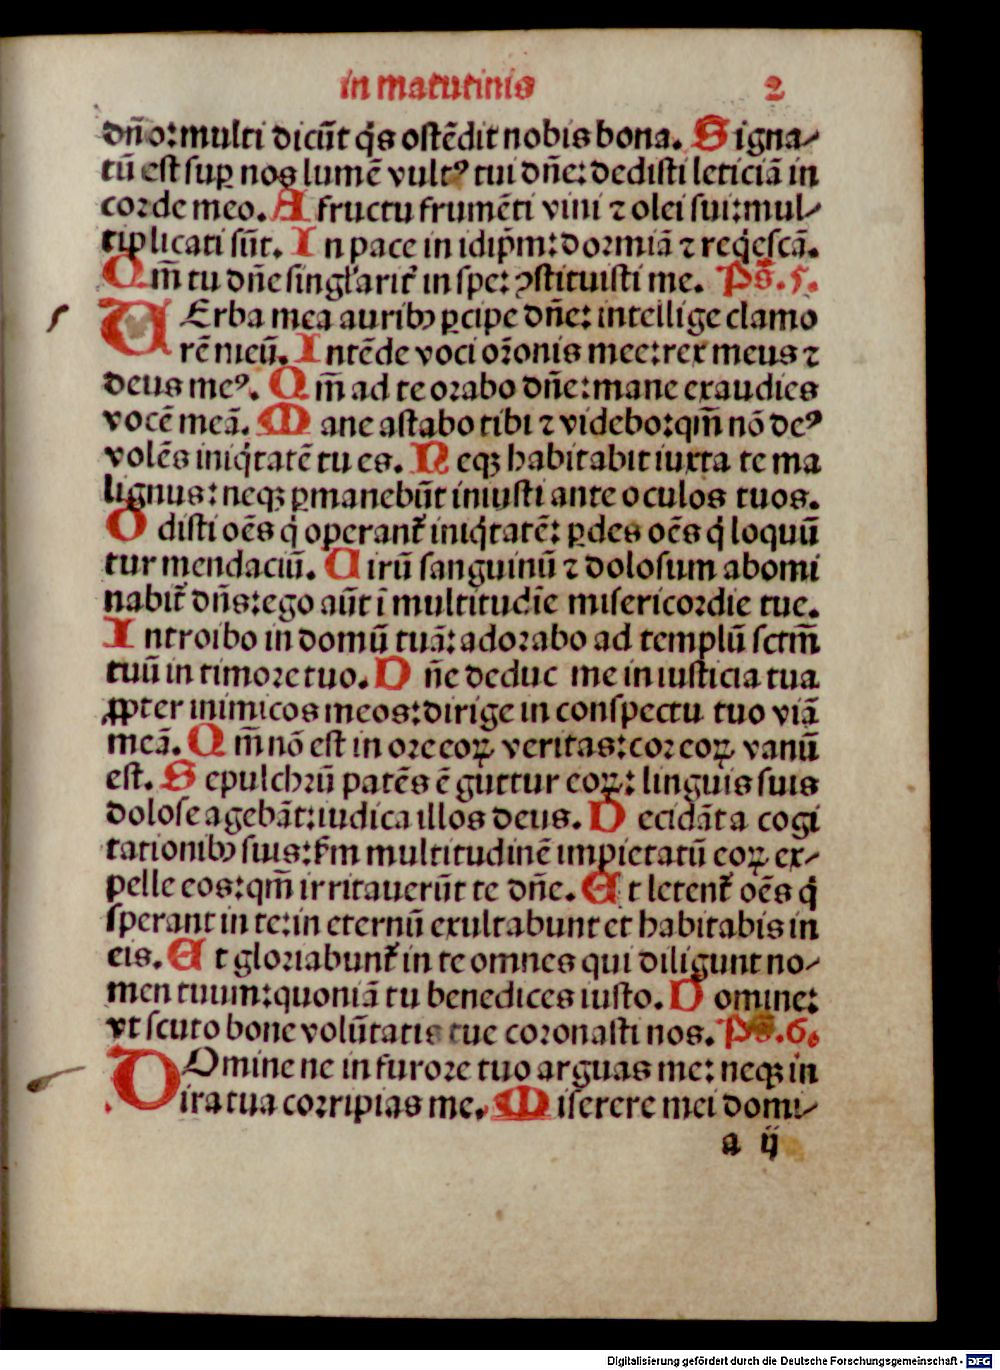 in matutinis 2
dño: multi dicũt q̃s ostẽdit nobis bona. Signa-
tũ est suꝑ nos lumẽ vultꝰ tui dñe: dedisti leticiã in
corde meo. A fructu frumẽti vini ⁊ olei sui: mul-
tiplicati sũt. In pace in idip̃m: dormiã ⁊ req̃escã.
Qm̃ tu dñe singl̃arit̃ in spe: ꝯstituisti me. Ps̃. 5.
VErba mea auribꝫ ꝑcipe dñe: intellige clamo
rẽ meũ. Intẽde voci or̃onis mee: rex meus ⁊
deus meꝰ. Qm̃ ad te orabo dñe: mane exaudies
vocẽ meã. Mane astabo tibi ⁊ videbo: qm̃ nõ deꝰ
volẽs iniq̃tatẽ tu es. Neqꝫ habitabit iuxta te ma
lignus: neqꝫ ꝑmanebũt iniusti ante oculos tuos.
Odisti oẽs q̃ operant̃ iniq̃tatẽ: ꝑdes oẽs q̃ loquũ
tur mendaciũ. Uirũ sanguinũ ⁊ dolosum abomi
nabit̃ dñs: ego aũt ĩ multitudĩe misericordie tue.
Introibo in domũ tuã: adorabo ad templũ sctm̃
tuũ in timore tuo. Dñe deduc me in iusticia tua
ꝓpter inimicos meos: dirige in conspectu tuo viã
meã. Qm̃ nõ est in ore eoꝝ veritas: cor eoꝝ vanũ
est. Sepulchrũ patẽs ẽ guttur eoꝝ: linguis suis
dolose agebãt: iudica illos deus. Decidãt a cogi
tationibꝫ suis: s̃m multitudinẽ impietatũ eoꝝ ex-
pelle eos: qm̃ irritauerũt te dñe. Et letent̃ oẽs q̃
sperant in te: in eternũ exultabunt et habitabis in
eis. Et gloriabunt̃ in te omnes qui diligunt no-
men tuum: quoniã tu benedices iusto. Domine:
vt scuto bone volũtatis tue coronasti nos. Ps̃. 6.
DOmine ne in furore tuo arguas me: neqꝫ in
ira tua corripias me. Miserere mei domi-
a ij
Digitalisierung gefördert durch die Deutsche Forschungsgemeinschaft - DFG